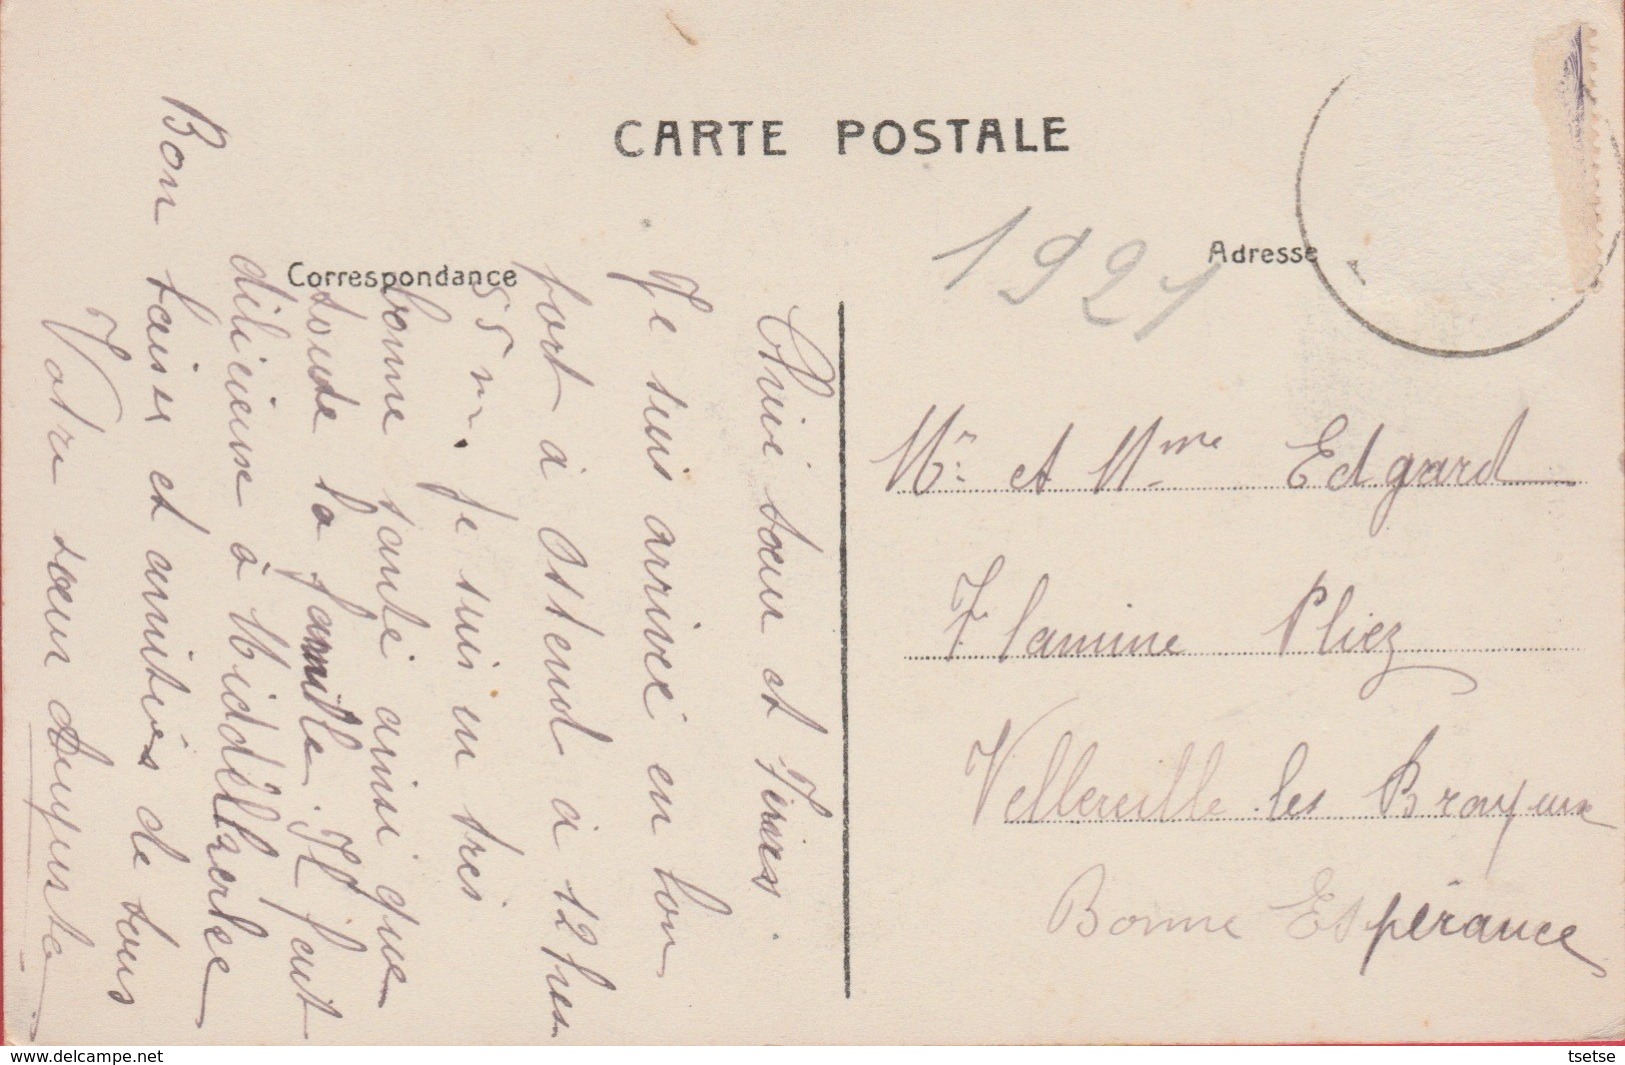 CARTE POSTALE
Correspondance
Adresse
1921
Chère sœur et Frères.
Je suis arrivée en bon
fort à Ostend à 12 hres
55 m. Je suis en très
bonne santé ainsi que
toute la famille. Il fait
délicieuse à Middelkerke
Bon baiser et amitiés de tous
Votre sœur Auguste
Mr. et Mme Edgard
Flamine Pliez
Vellereille les Brayeux
Bonne Espérance
delcampe.net
tsetse